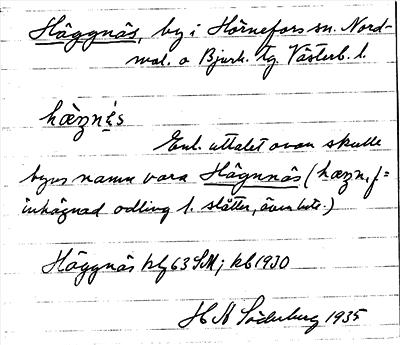 Häggnäs, by i Hörnefors sn. Nord-
mal. o Bjurh. tg. Västerb. l.
hæ̀gnés
Enl. uttalet ovan skulle
byns namn vara Hägnnäs (hægn, f=
inhägnad odling l. slåtter, även bete.)
Häggnäs blg 63 SM; kb 1930
H A Söderberg 1935